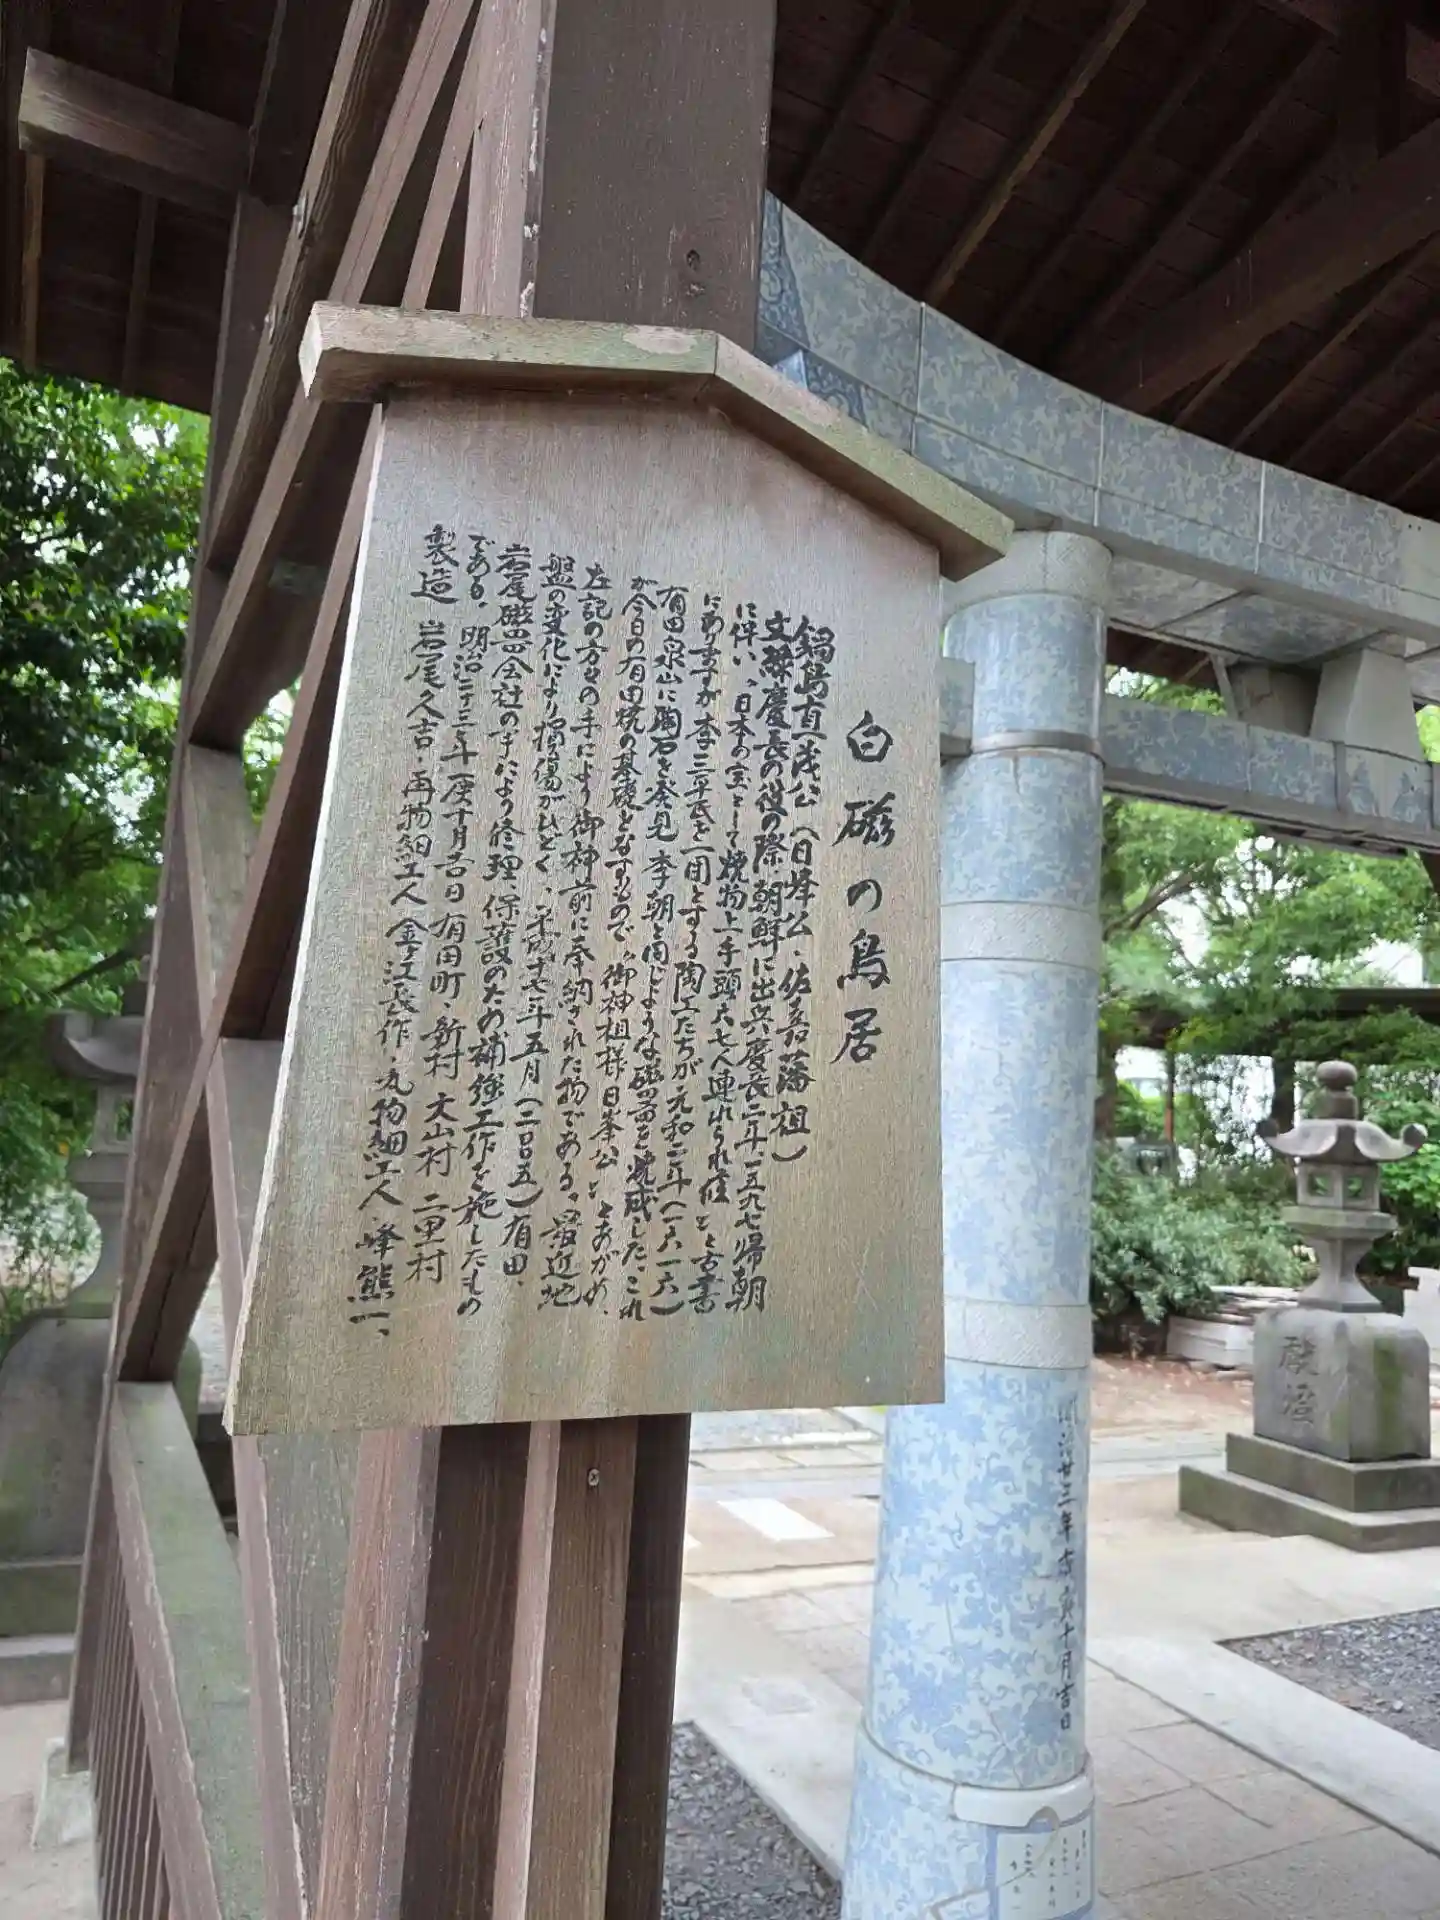 白磁の鳥居
鍋島直茂公(日峰公、佐嘉藩祖)
文禄慶長の役の際、朝鮮に出兵慶長二年一五九七帰朝
に伴い、日本の宝として焼物上手頭六七人連れられ候 と古書
にありますが李三平氏を一団とする陶工たちが元和二年(一六一六)
有田泉山に陶石を発見 李朝と同じような磁器を焼成した、これ
が今日の有田焼の基礎となすもので、御神祖様日峯公 とあがめ、
左記の方々の手により御神前に奉納された物である。最近地
盤の変化により損傷がひどく、平成十七年五月(二〇〇五)有田、
岩尾磁器会社の手により修理、保護のため補強工作を施したもの
である。
明治二十三年 庚十月吉日 有田町・新村 大山村 二里村
製造 岩尾久吉・再物細工人 金ヶ江長作・丸物細工人 峰熊一、
明治廿三年 庚十月吉日
献燈